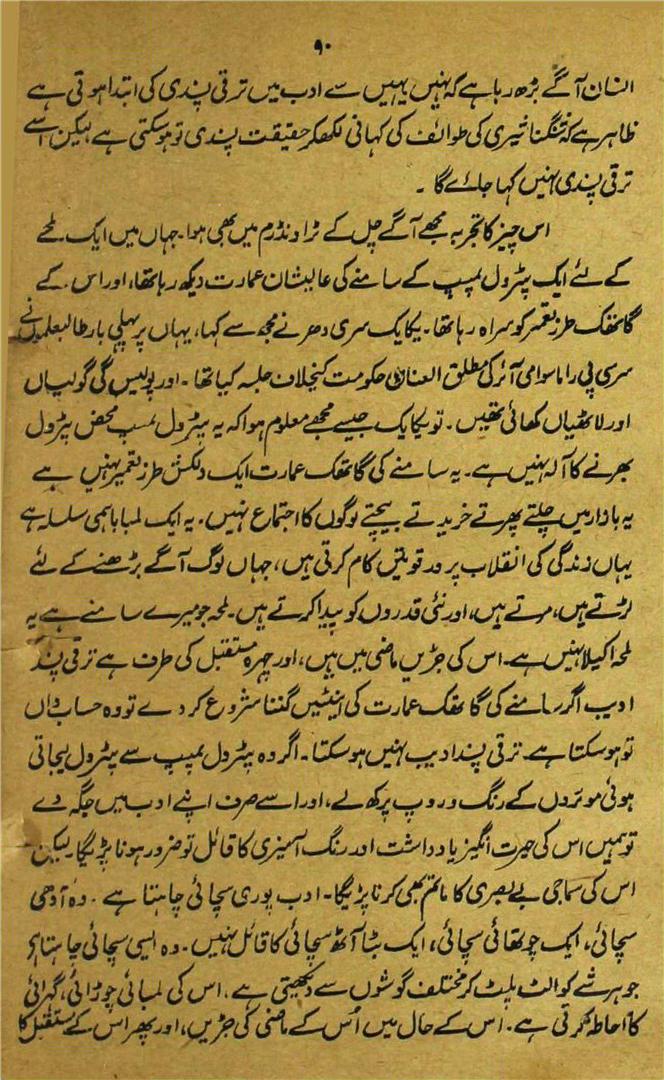 ۹۰
انسان آگے بڑھ رہا ہے کہ نہیں یہیں سے ادب میں ترقی پندی کی ابتدا ہوتی ہے
ظاہر ہے کہ تنگنا ثیری کی طوائف کی کہانی لکھکر حقیقت پندی تو ہوسکتی ہے لیکن اسے
ترقی پندی نہیں کہا جائے گا ۔
اس چیز کا تجربہ مجھے آگے چل کے ٹراونڈرم میں بھی ہوا۔ جہاں میں ایک لمحے
کے لئے ایک پٹرول پمپ کے سامنے کی عالیشان عمارت دیکھ رہا تھا، اور اس کے
گاتھک طرز تعمیر کو سراہ رہا تھا۔ یکایک سری دھر نے مجھ سے کہا، یہاں پر پہلی بار طالبعلموں نے
سری پی راما سوامی آئر کی مطلق العنان حکومت کیخلاف جلسہ کیا تھا ۔ اور پولیس کی گولیاں
اور لاٹھیاں کھائی تھیں ۔ تو یکایک جیسے مجھے معلوم ہوا کہ یہ پٹرول پمپ محض پٹرول
بھرنے کا آلہ نہیں ہے۔ یہ سامنے کی گاتھک عمارت ایک دلکش طرز تعمیر نہیں ہے
یہ بازار میں چلتے پھرتے خریدتے بیچتے لوگوں کا اجتماع نہیں۔ یہ ایک لمبا باہمی سلسلہ ہے
یہاں زندگی کی انقلاب پرور قوتیں کام کرتی ہیں، جہاں لوگ آگے بڑھنے کے لئے
لڑتے ہیں، مرتے ہیں، اور نئی قدروں کو پیدا کرتے ہیں۔ لمحہ جو میرے سامنے ہے یہ
لمحہ اکیلا نہیں ہے۔ اس کی جڑیں ماضی میں ہیں، اور چہرہ مستقبل کی طرف ہے ترقی پند
ادیب اگر سامنے کی گاتھک عمارت کی اینٹیں گننا شروع کر دے تو وہ حساب داں
تو ہوسکتا ہے۔ ترقی پند ادیب نہیں ہوسکتا۔ اگر وہ پٹرول پمپ سے پٹرول لیجاتی
ہوئی موٹروں کے رنگ و روپ پرکھ لے، اور اسے صرف اپنے ادب میں جگہ دے
تو ہمیں اس کی حیرت انگیز یادداشت اور رنگ آمیزی کا قائل تو ضرور ہونا پڑیگا۔ لیکن
اس کی سماجی بے بصری کا ماتم بھی کرنا پڑیگا۔ ادب پوری سچائی چاہتا ہے ۔ وہ آدھی
سچائی، ایک چوتھائی سچائی، ایک بٹا آٹھ سچائی کا قائل نہیں۔ وہ ایسی سچائی چاہتا ہے
جو ہر شے کو الٹ پلٹ کر مختلف گوشوں سے دیکھیتی ہے، اس کی لمبائی چوڑائی، گہرائی
کا احاطہ کرتی ہے۔ اس کے حال میں اُس کے ماضی کی جڑیں، اور پھر اس کے مستقبل کا